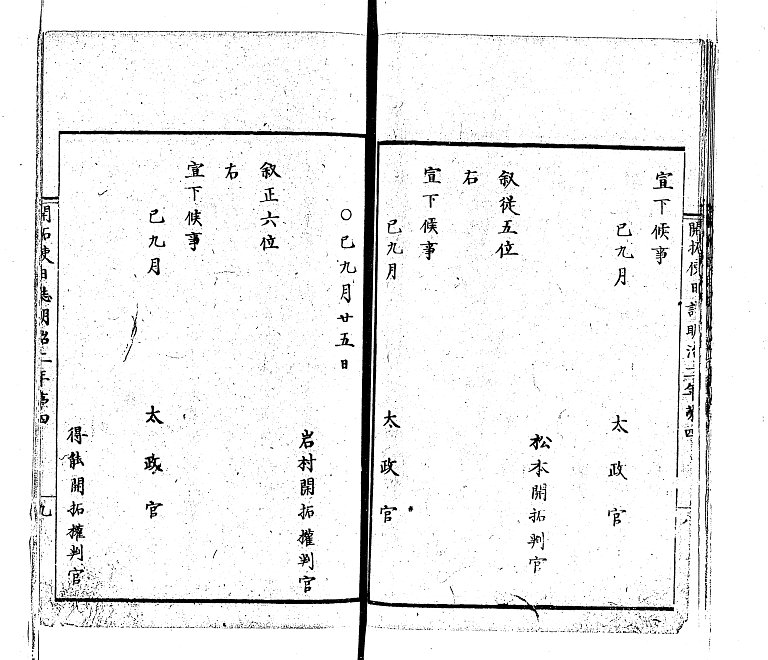 宣下候事
已九月
太政官
松本開拓判官
叙従五位
右
宣下候事
已九月
太政官
開拓使日誌明治二年第四
八
○已九月廿五日
岩村開拓権判官
叙正六位
右
宣下候事
已九月
太政官
得能開拓権判官
開拓使日誌明治二年第四
九